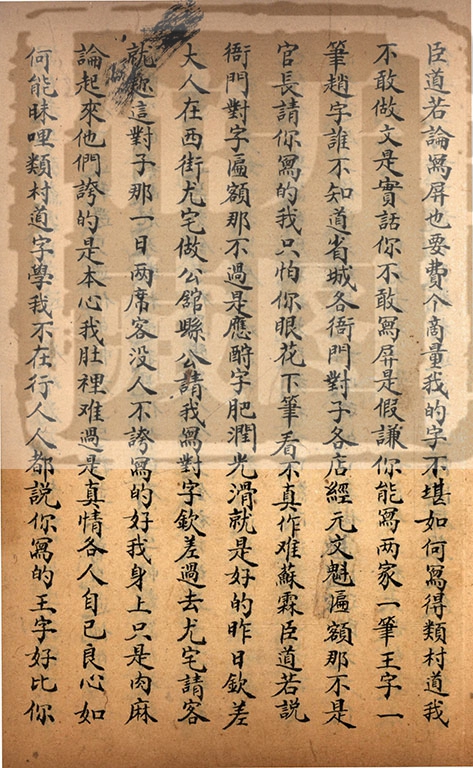 臣道若論寫屏也要費个商量我的字不堪如何寫得類村道我
不敢做文是實話你不敢寫屏是假謙你能寫两家一筆王字一
筆趙字誰不知道省城各衙門對子各店經元文魁匾額那不是
官長請你寫的我只怕你眼花下筆看不真作难蘇霖臣道若說
衙門對字匾額那不過是應酧字肥潤光滑就是好的昨日欽差
大人在西街尤宅做公舘縣公請我寫對字欽差過去尤宅請客
就趂這對子那一日两席客没人不誇寫的好我身上只是肉麻
論起來他們誇的是本心我肚裡难過是真情各人自己良心如
何能昧哩類村道字學我不在行人人都説你寫的王字好比你